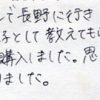 で長野に行き
子として教えてもら
購入しました。思
りました。